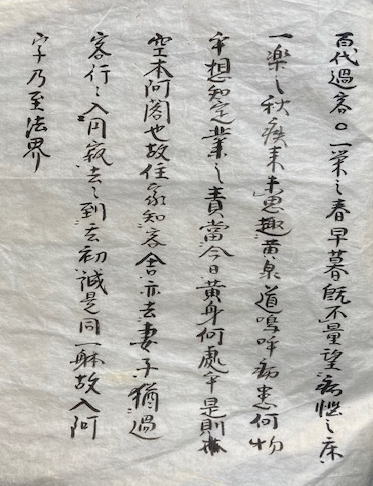 百代過客○一栄之春早暮既不量望病悩之床
一楽之秋疾来未思趣黄泉道嗚呼病患何物
乎想知定業之責當今日黄身何處乎是則
空本阿閣也故住家知客舎亦去妻子猶過
客行々入円寂去々到初誠是同一躰故入阿
字乃至法界